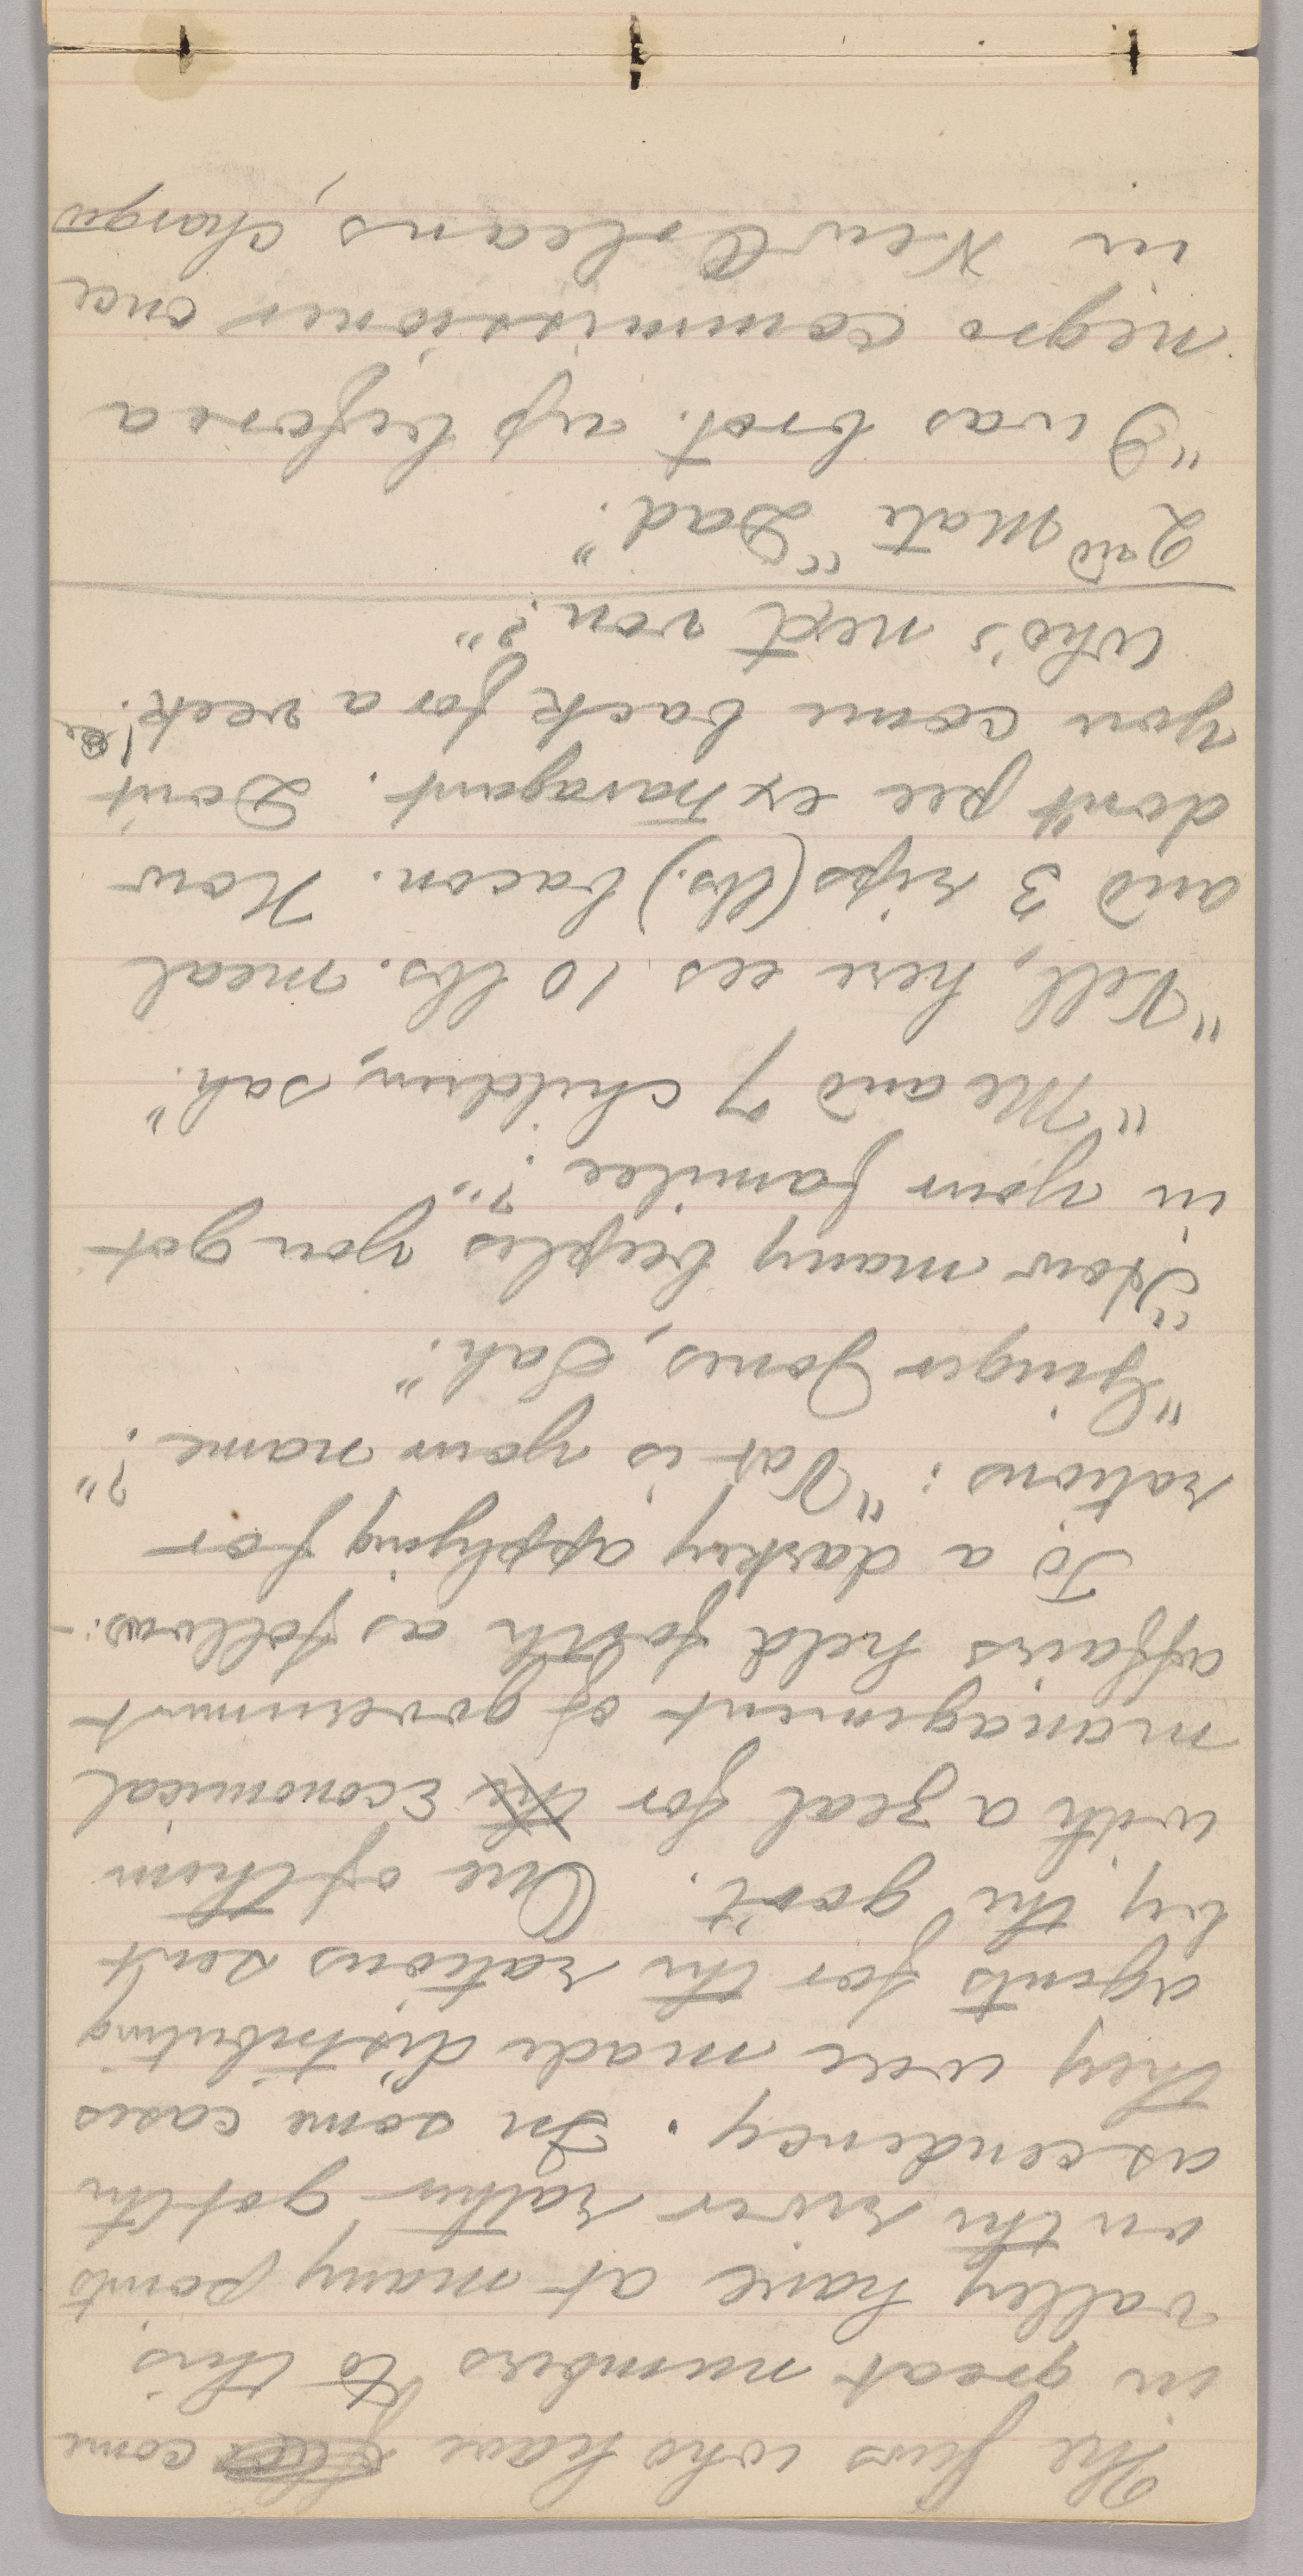 The Jews who have come
in great numbers to this
valley have at many points
on the river rather got the
ascendency. In some cases
they were made distributing
agents for the rations sent
by the gov't. One of them
with a zeal for the Economical
management of government
affairs held forth as follows:-
To a darkey applying for
rations: "Vat is your name?"
"Ginger Jones, Sah."
"How many beeples you got
in your familee?"
"Me and 7 children, sah."
"Vell, here ees 10 lbs. meal
and 3 rips (lbs.) bacon. Now
don't pee extravagant. Don't
you come back for a veek!
Who's next von?"
2nd Mate "Dad."
"I was brot. up before a
negro commissioner once
in New Orleans, charged